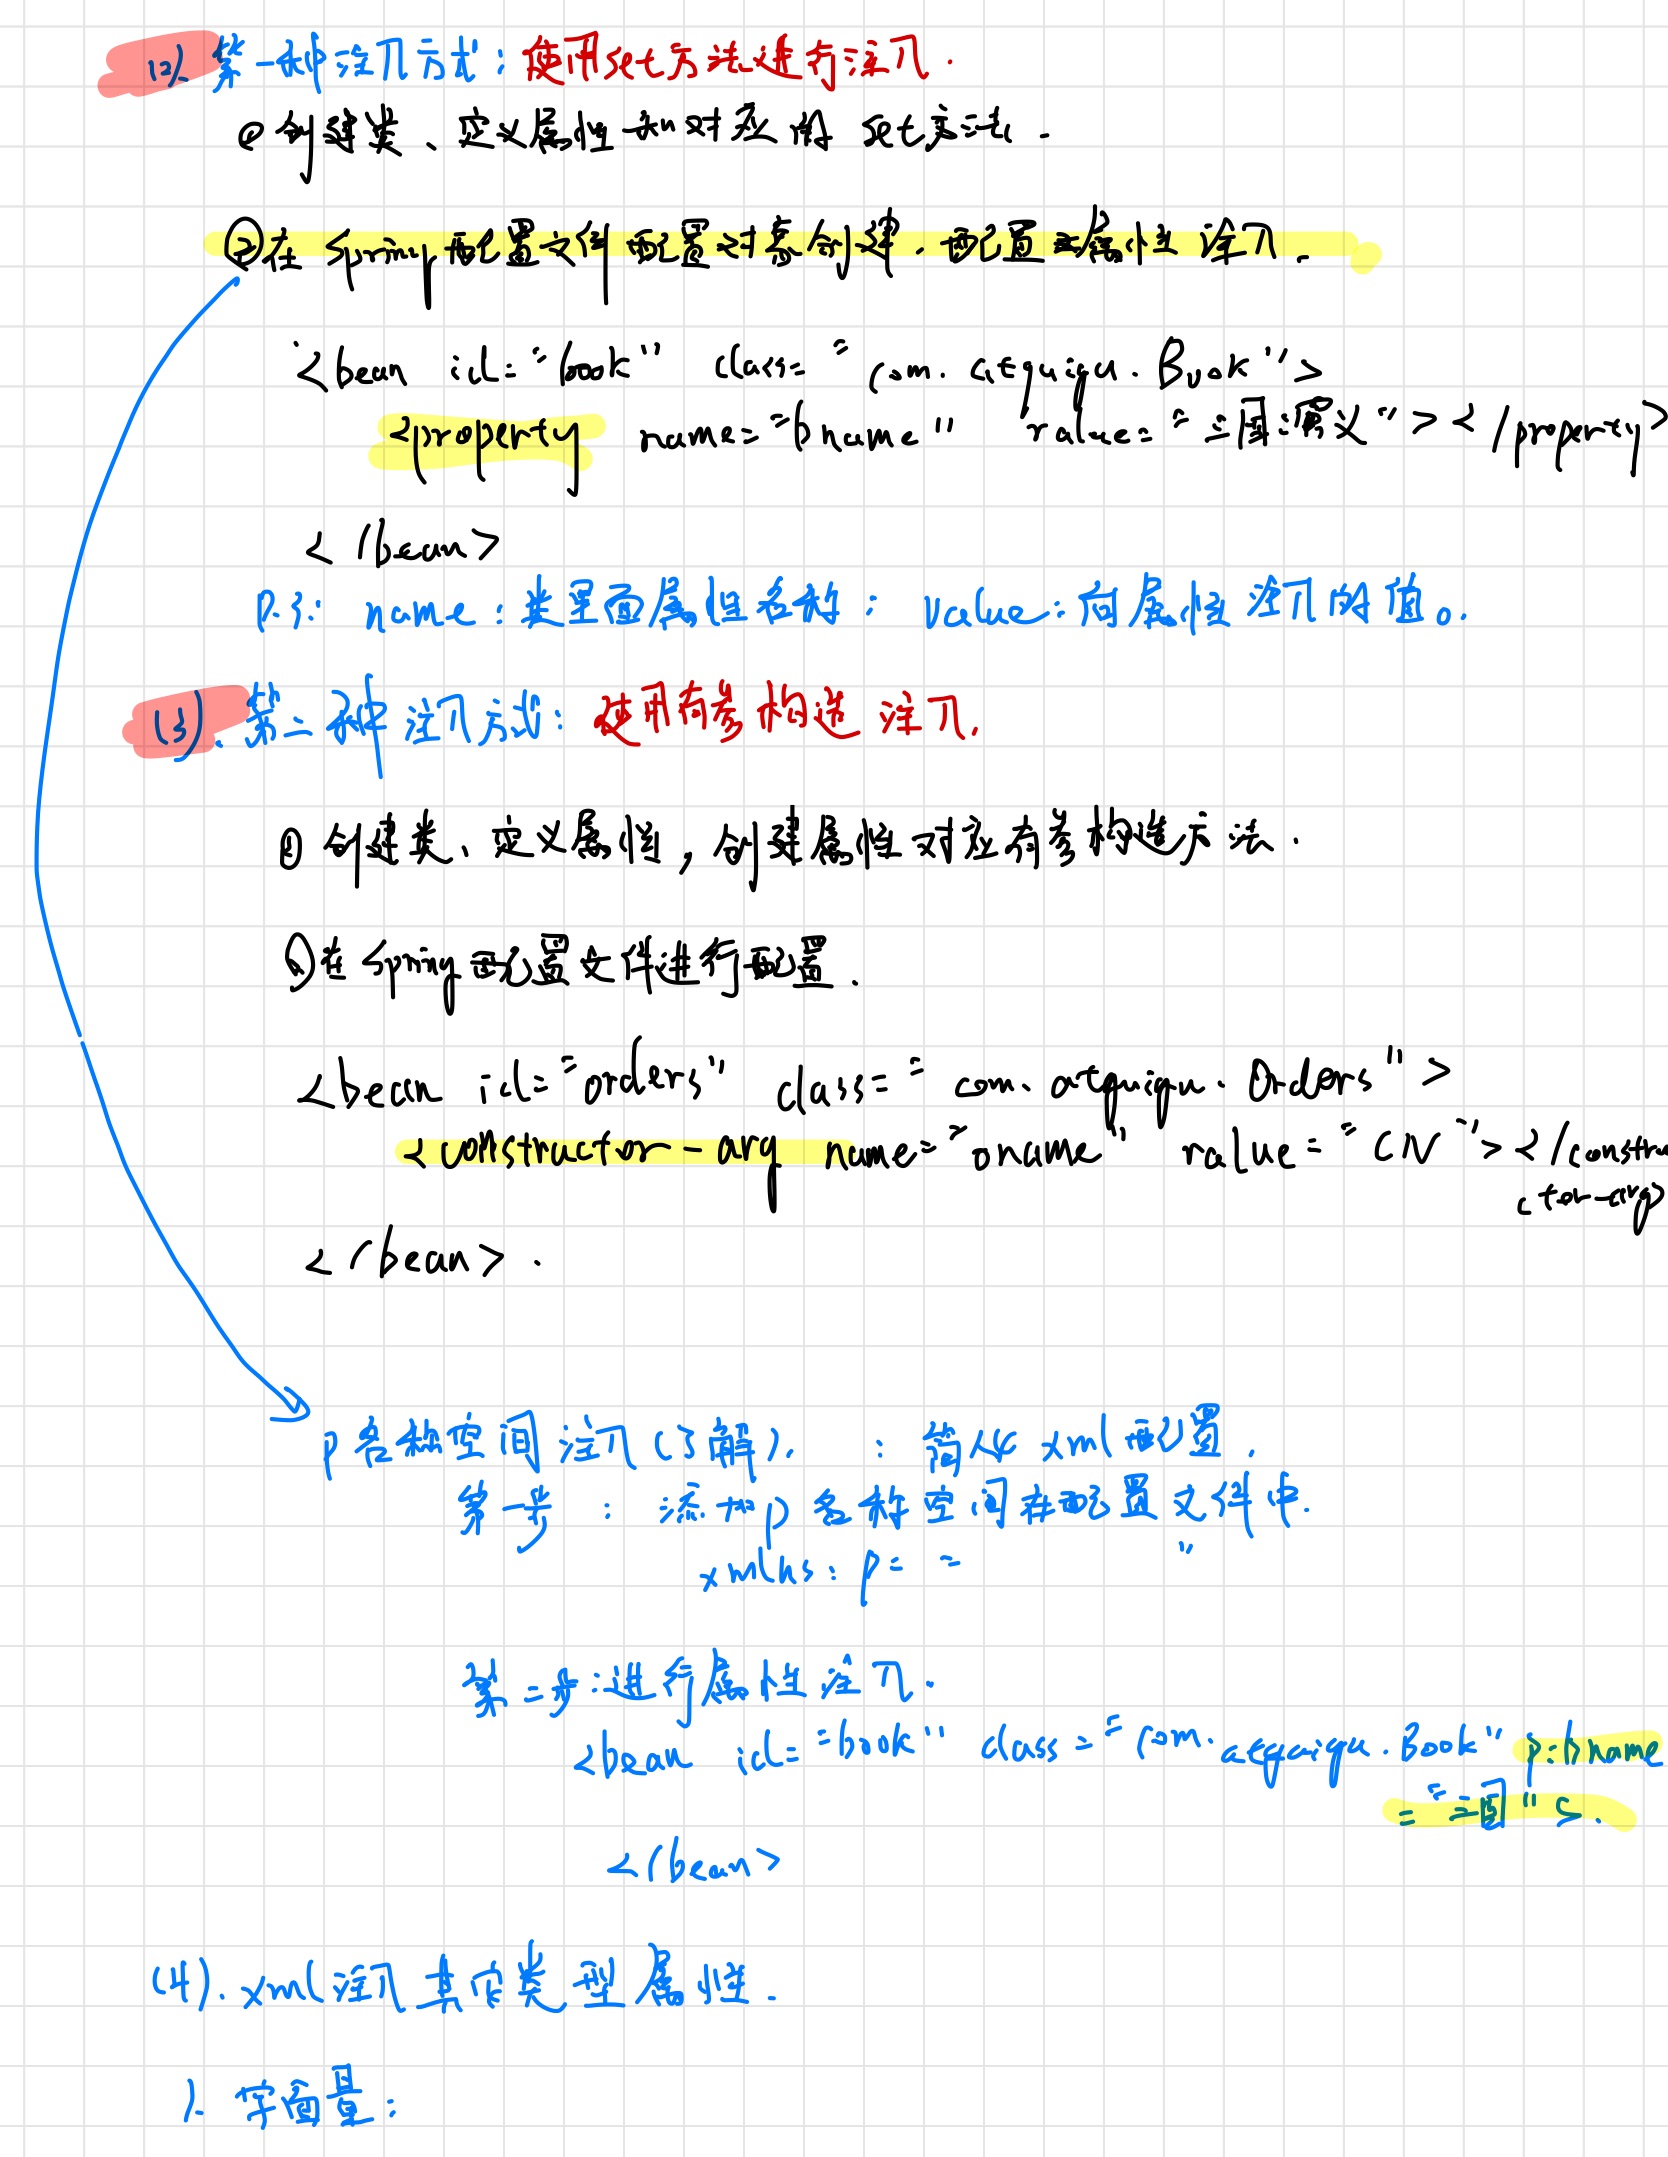 (2). 第一种注入方式：使用set方法进行注入.
① 创建类、定义属性和对应的 set方法.
②在 Spring 配置文件配置对象创建, 配置属性注入.
<bean id="book" class="com.atguigu.Book">
<property name="bname" value="三国演义"></property>
</bean>
P.S: name：类里面属性名称； value：向属性注入的值。
(3). 第二种注入方式：使用有参构造注入.
① 创建类、定义属性, 创建属性对应有参构造方法.
②在 Spring 配置文件进行配置.
<bean id="orders" class="com.atguigu.Orders">
<constructor-arg name="oname" value="CN"></constru
ctor-arg>
</bean>.
p 名称空间注入(了解). ：简化 xml 配置.
第一步：添加p名称空间在配置文件中.
xmlns:p=" "
第二步:进行属性注入.
<bean id="book" class="com.atguigu.Book" p:bname
="三国">.
</bean>
(4). xml注入其它类型属性.
1. 字面量：